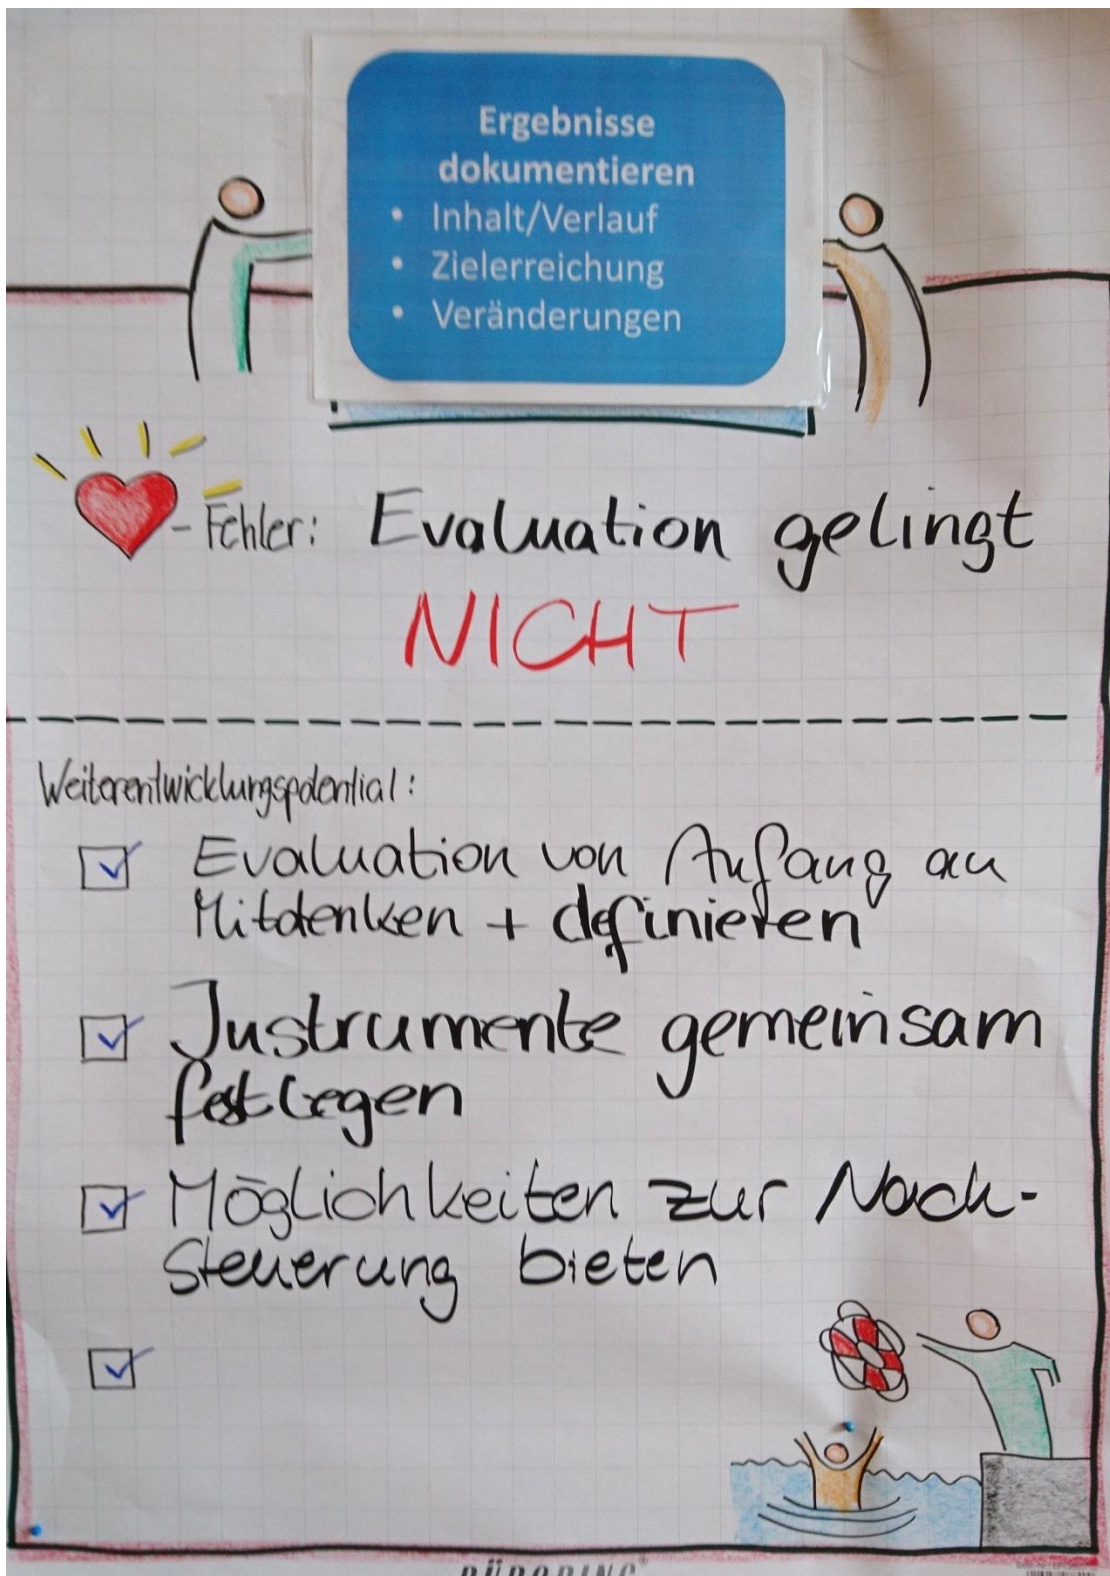 Ergebnisse
dokumentieren
• Inhalt/Verlauf
• Zielerreichung
• Veränderungen
- Fehler: Evaluation gelingt
NICHT
Weiterentwicklungspotential:
Evaluation von Anfang an
Mitdenken + definieren
Instrumente gemeinsam
festlegen
Möglichkeiten zur Nach-
steuerung bieten